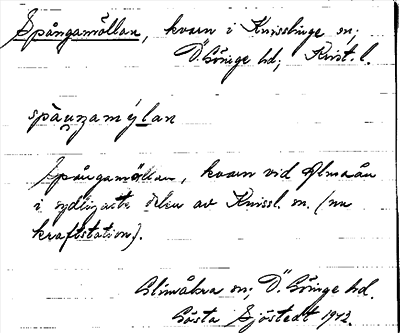 Spångamöllan, kvarn i Knisslinge sn;
Ö. Göinge hd; Krist. l.
spånzamýlan
Spångamöllan, kvarn vid Almaån
i sydligaste delen av Knissl. sn. (nu
kraftstation).
Glimåkra sn, Ö. Göinge hd.
Gösta Sjöstedt 1942.